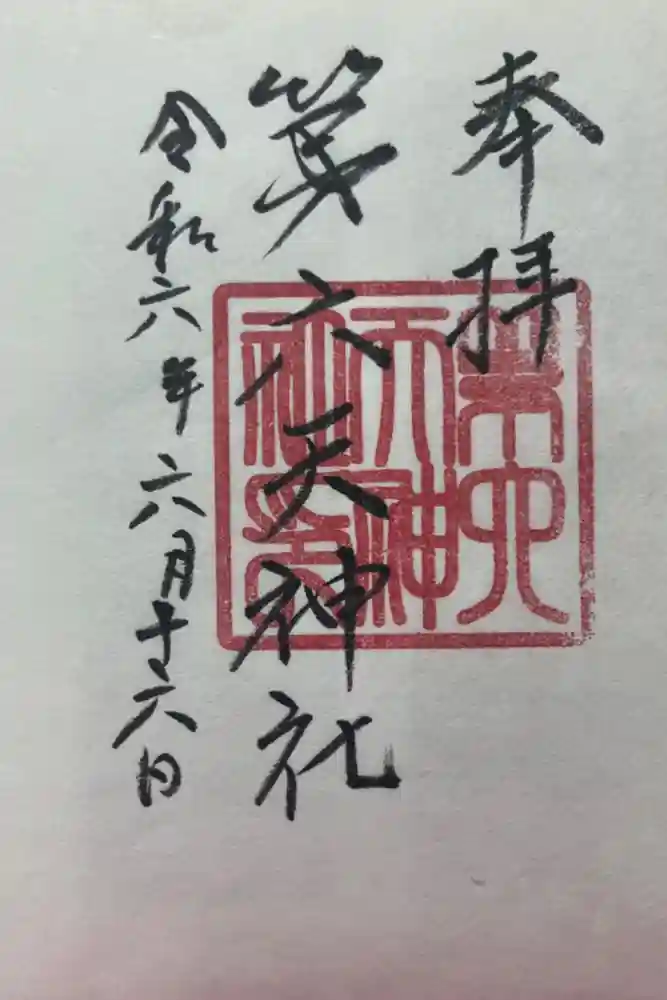 奉拝
第六天神社
令和六年六月十六日
第六
天神
社